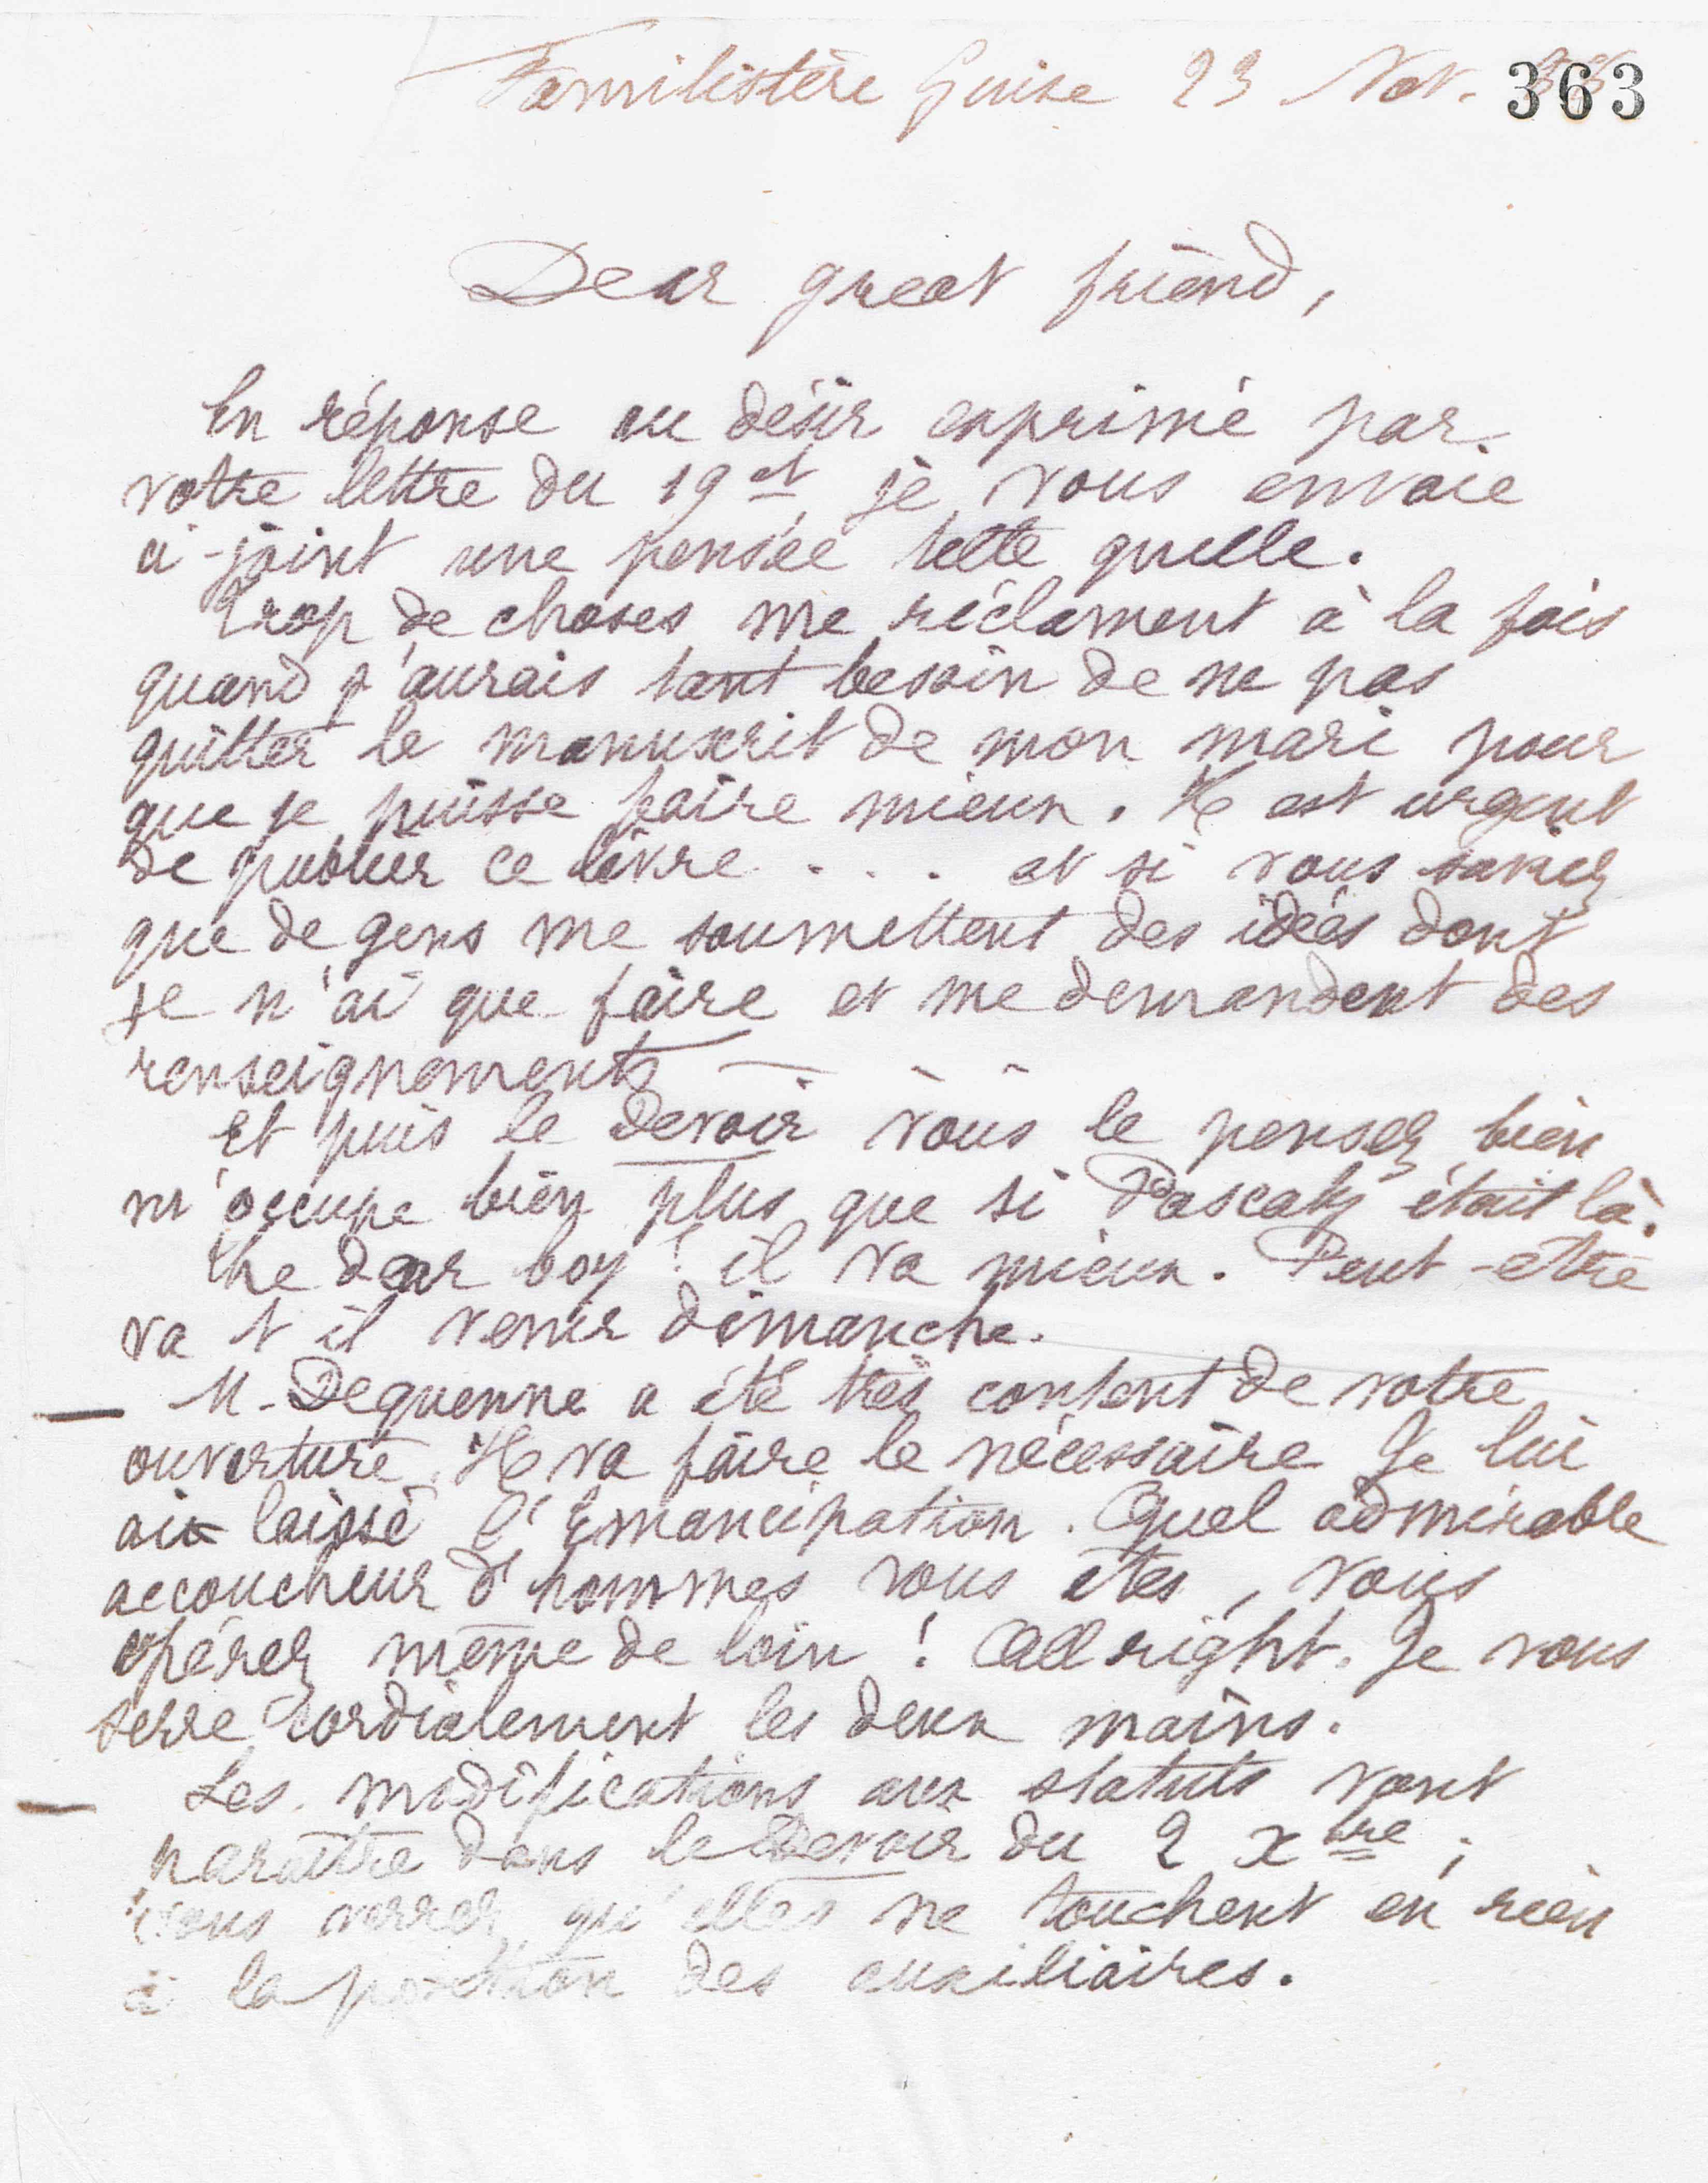 Familistère Guise 23 Nov. 363
Dear great friend,
En réponse au désir exprimé par
votre lettre du 19 et, je vous envoie
ci-joint une pensée telle quelle.
Trop de choses me réclament à la fois
quand j'aurais tant besoin de ne pas
quitter le manuscrit de mon mari pour
que je puisse faire mieux. Il est urgent
de publier ce livre . . . et si vous saviez
que de gens me soumettent des idées dont
je n'ai que faire et me demandent des
renseignements - - -
Et puis le Devoir vous le pensez bien
m'occupe bien plus que si Pascaly était là.
The dear boy ! il va mieux. Peut-être
va t il venir dimanche.
— M. Dequenne a été très content de votre
ouverture. Il va faire le nécessaire Je lui
ai laissé l'Emancipation. Quel admirable
accoucheur d'hommes vous êtes, vous
opérez même de loin ! All right. Je vous
serre cordialement les deux mains.
— Les modifications aux statuts vont
paraître dans le Devoir du 2 Xbre ;
vous verrez qu'elles ne touchent en rien
à la position des auxiliaires.